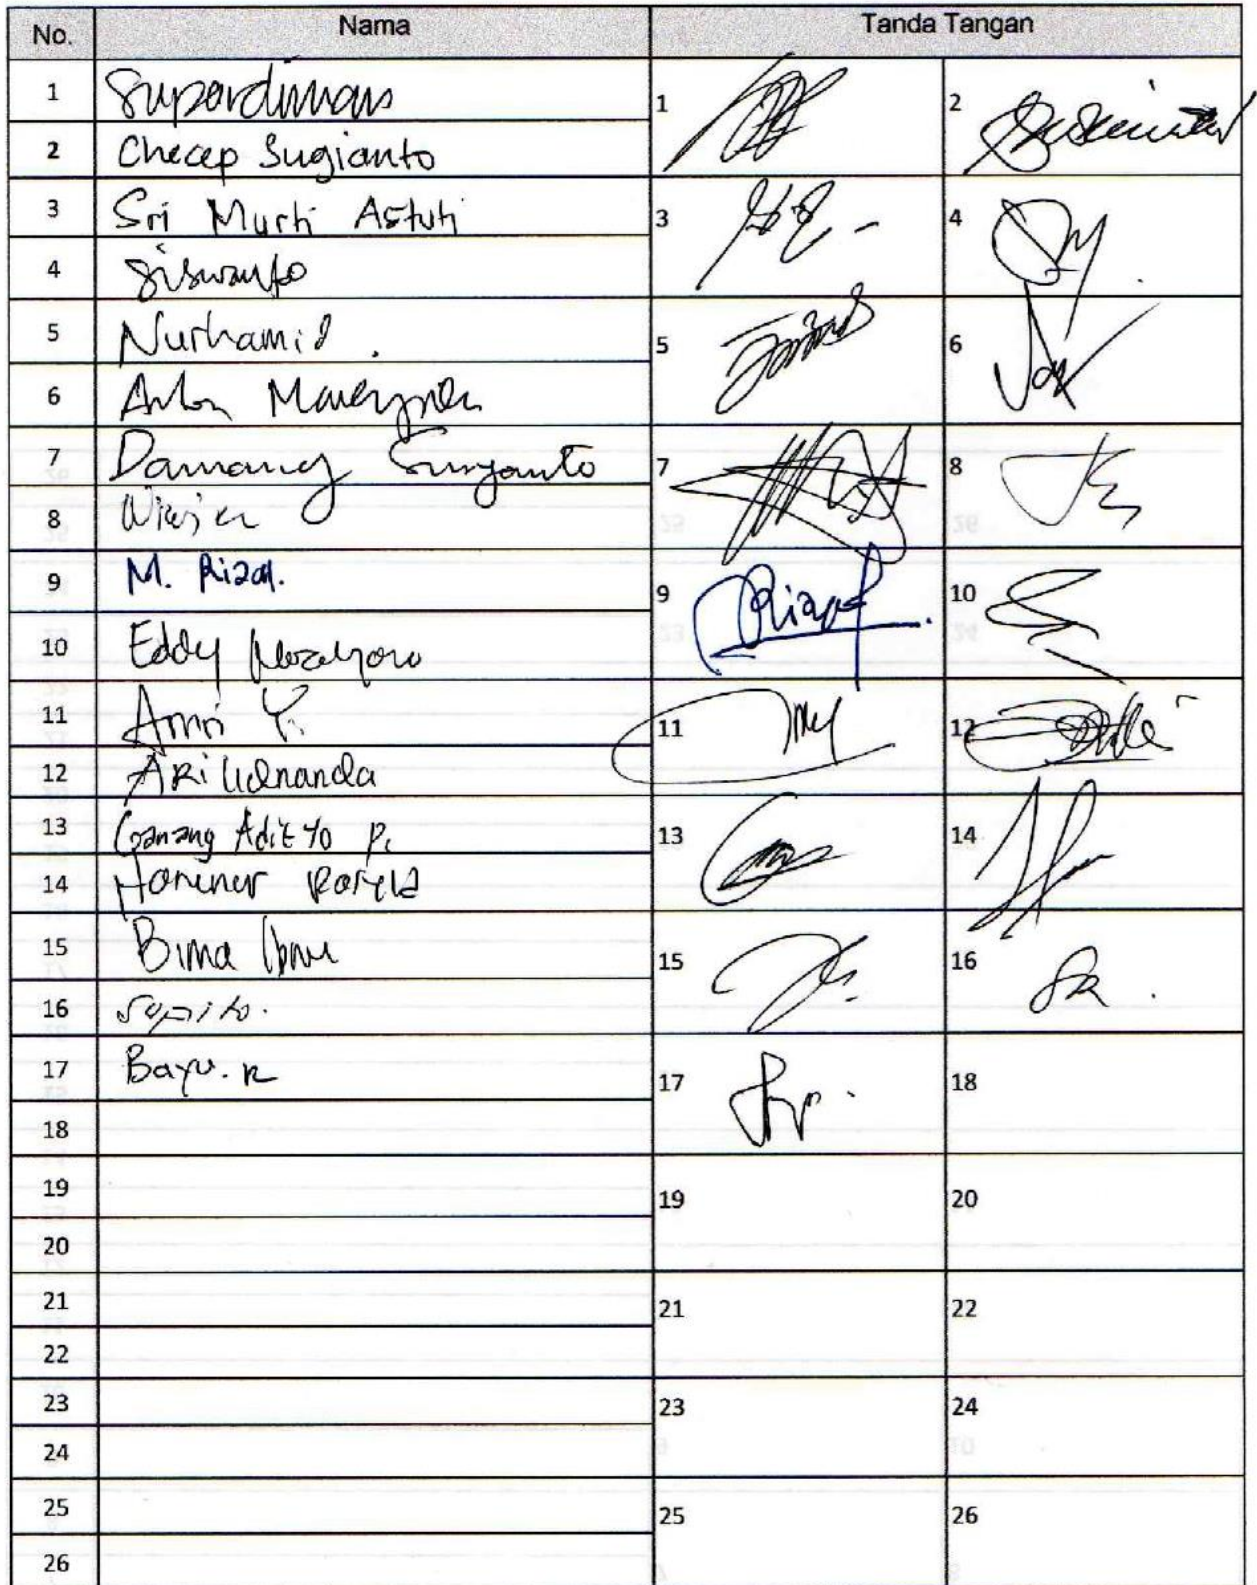 No. Nama Tanda Tangan
1 Supardiman 1 2
2 Checep Sugianto
3 Sri Murti Astuti 3 4
4 Siswanto
5 Nurhamid. 5 6
6 Anton
7 Damang Suryanto 7 8
8
9 M. Rizal. 9 Rizal 10
10 Eddy
11 Amri Y. 11 12
12 Ari
13 Ganang Adityo P. 13 14
14
15 Bima Ibnu 15 16
16
17 Bayu. R 17 18
18
19 19 20
20
21 21 22
22
23 23 24
24
25 25 26
26